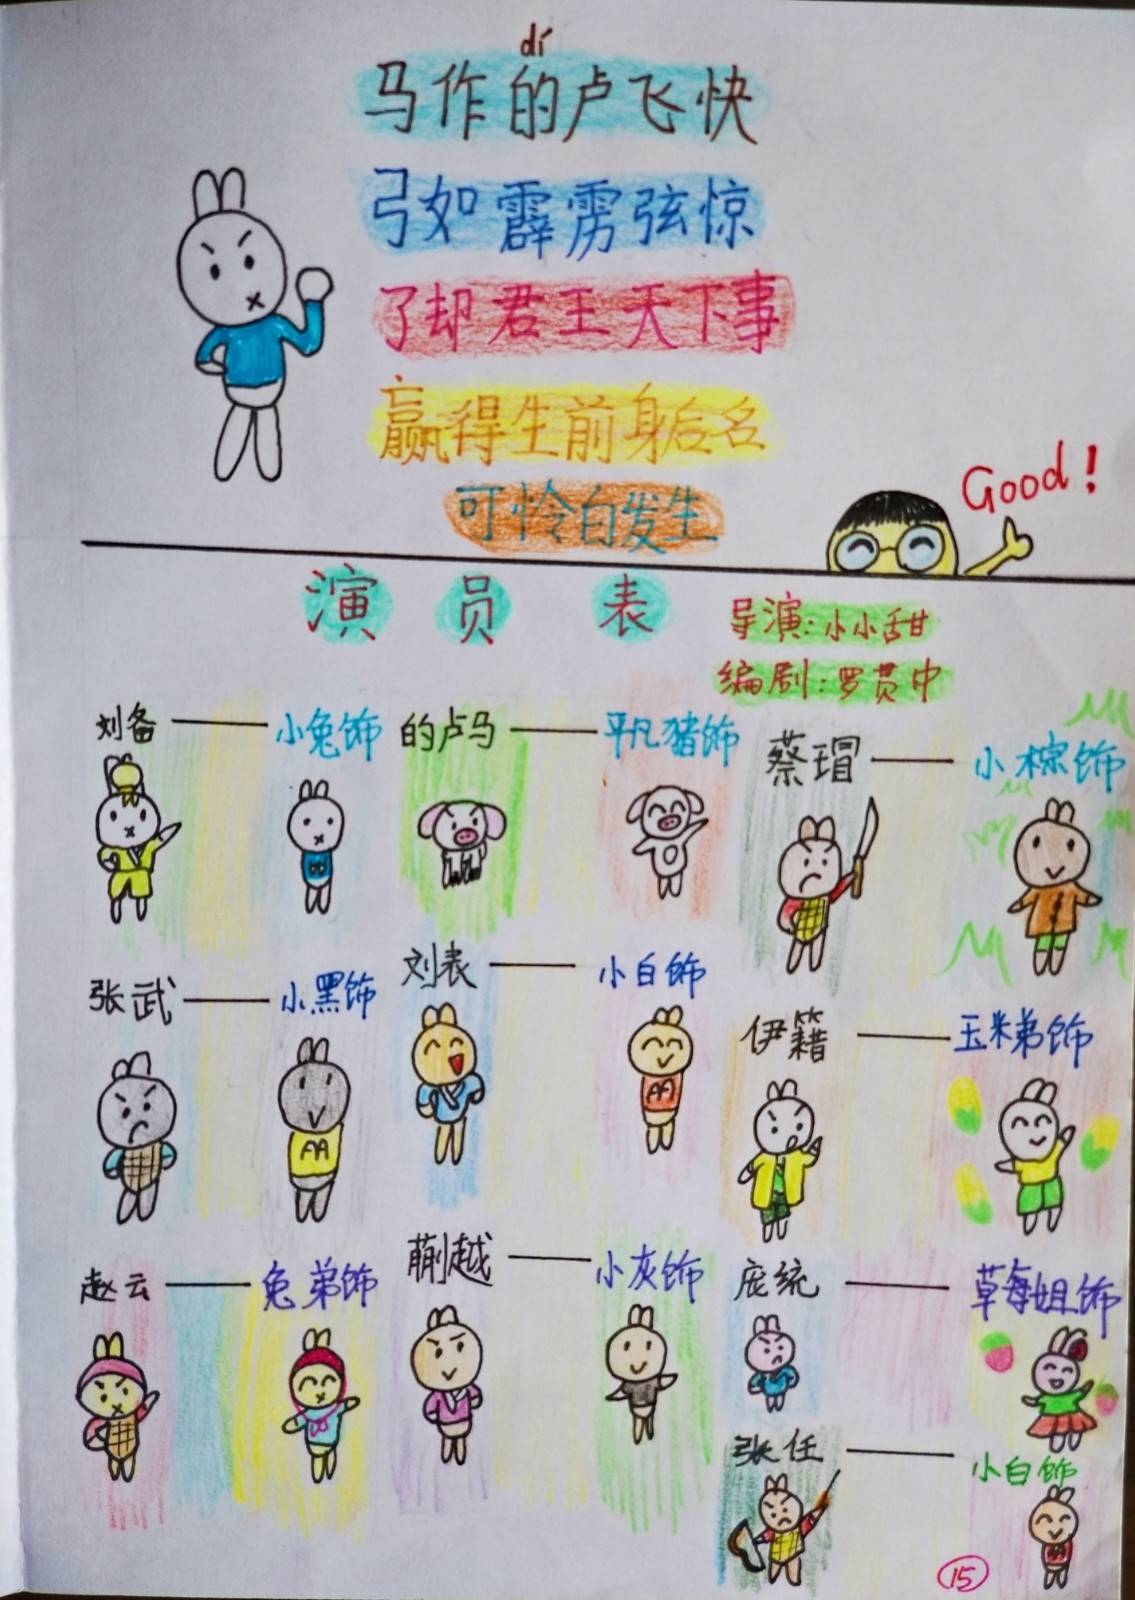 dí
马作的卢飞快
弓如霹雳弦惊
了却君王天下事
赢得生前身后名
可怜白发生
Good!
演员表
导演:小小甜
编剧:罗贯中
刘备——小兔饰
的卢马——平凡猪饰
蔡瑁——小棕饰
张武——小黑饰
刘表——小白饰
伊籍——玉米弟饰
赵云——兔弟饰
蒯越——小灰饰
庞统——草莓姐饰
张任——小白饰
15